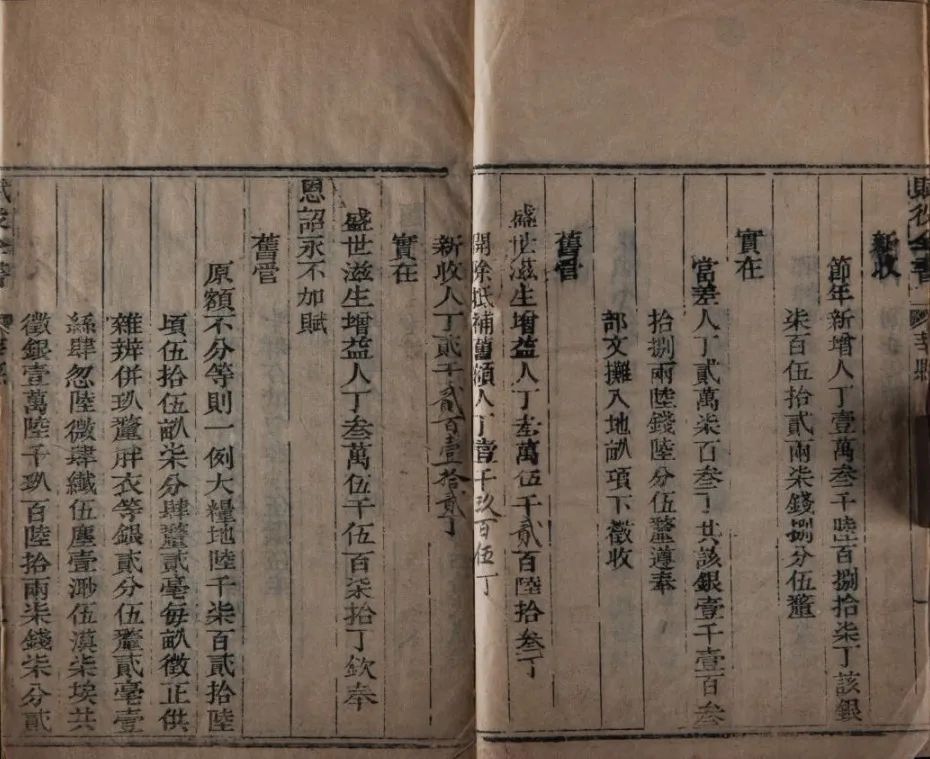 賦役全書
新收
節年新增人丁壹萬叁千陸百捌拾柒丁該銀
柒百伍拾貳兩柒錢捌分伍釐
實在
當差人丁貳萬柒百叁丁共該銀壹千壹百叁
拾捌兩陸錢陸分伍釐遵奉
部文攤入地畝項下徵收
舊管
盛世滋生增益人丁叁萬伍千貳百陸拾叁丁
開除抵補舊額人丁壹千玖百伍丁
新收人丁貳千貳百壹拾貳丁
實在
盛世滋生增益人丁叁萬伍千伍百柒拾丁欽奉
恩詔永不加賦
舊管
原額不分等則一例大糧地陸千柒百貳拾陸
頃伍拾伍畝柒分肆釐貳毫每畝徵正供
雜辨併玖釐胖衣等銀貳分伍釐貳毫壹
絲肆忽陸微肆纖伍塵壹渺伍漠柒埃共
徵銀壹萬陸千玖百陸拾兩柒錢柒分貳
賦役全書